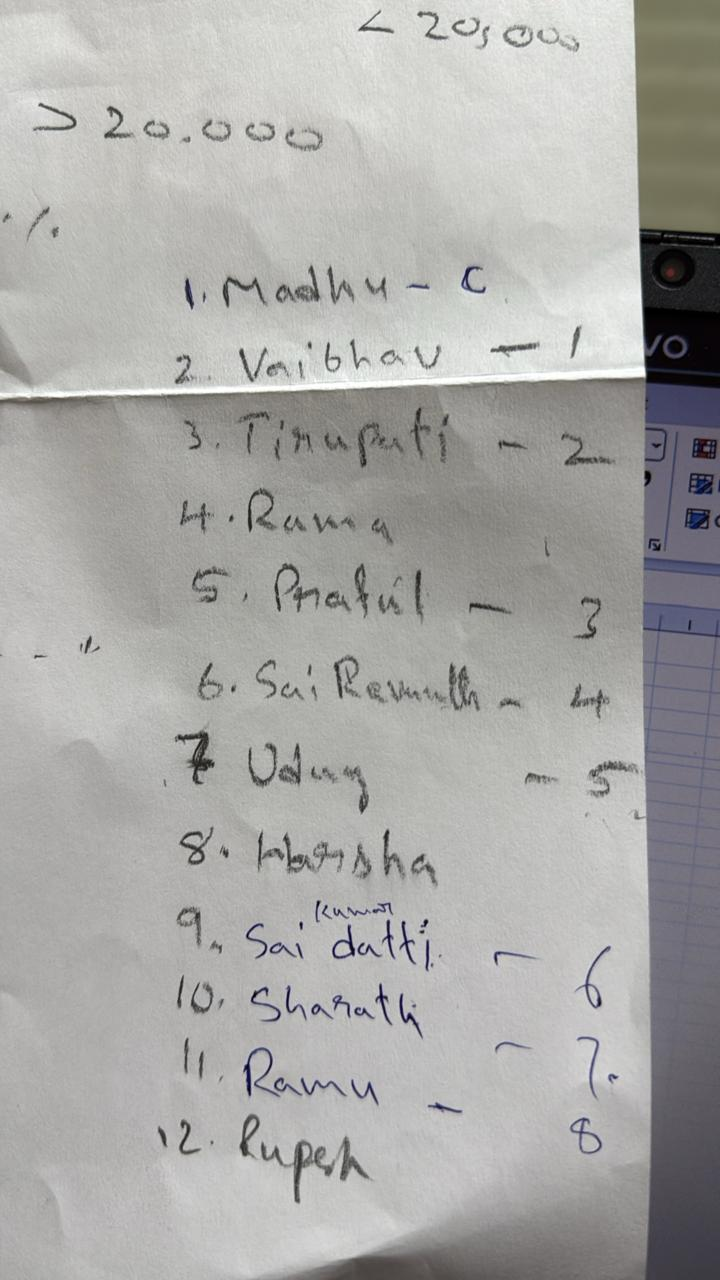 < 20,000
> 20.000
%
1. Madhu - C
VO
2. Vaibhav - 1
3. Tirupati - 2
4. Rama
5. Praful - 3
6. Sai - 4
7 Uday - 5
8. Harsha
kumar
9. Sai datti - 6
10. Sharath - 7.
11. Ramu - 8
12. Rupesh